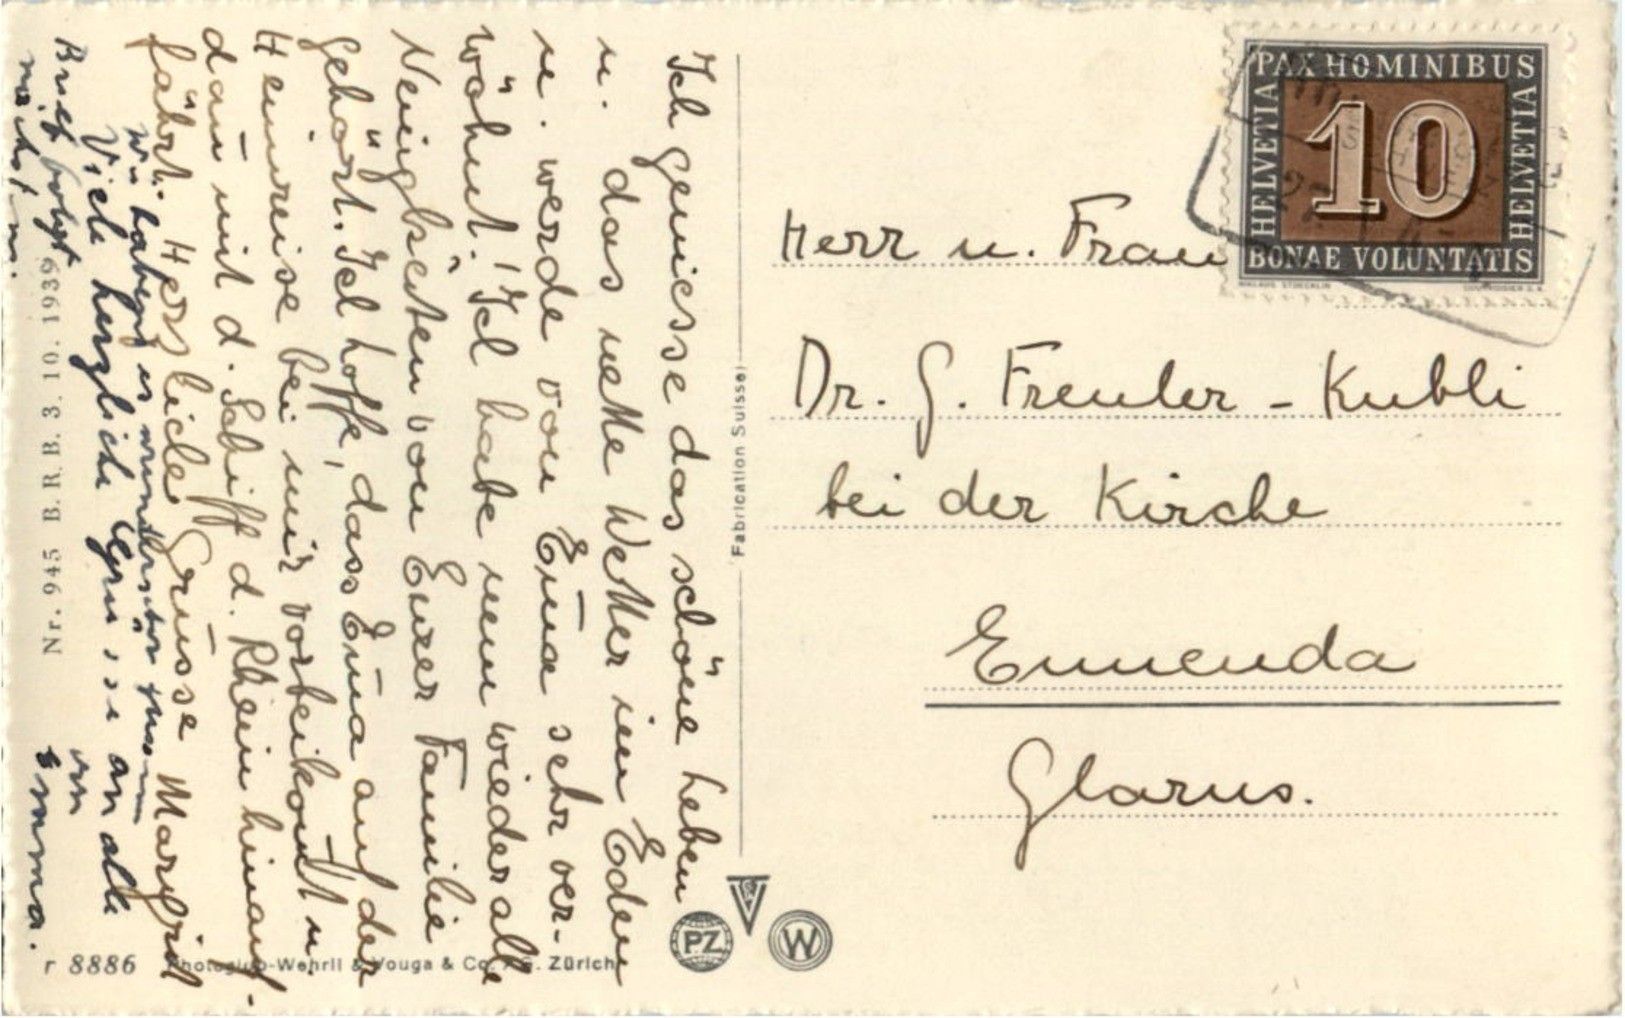 Ich geniesse das schöne Leben
u. das nette Wetter im Eden
u. werde von Em̄a sehr ver-
wöhnt! Ich habe nun wieder alle
Neuigkeiten von Euer Familie
gehört. Ich hoffe, dass Em̄a auf der
Heimreise bei mir vorbeikom̄t u.
dan̄ mit d. Schiff d. Rhein hinauf-
fährt. Herzliche Grüsse Margrit
Wir haben es wunderschön
Viele herzliche Grüsse an alle
Brief folgt von
nächstens. Emma.
Nr. 945 B. R. B. 3. 10. 1939
r 8886 Photoglob-Wehrli & Vouga & Co. A.G. Zürich
Fabrication Suisse
PZ
W
PAX HOMINIBUS
HELVETIA
10
HELVETIA
BONAE VOLUNTATIS
Herr u. Frau
Dr. G. Freuler - Kubli
bei der Kirche
Ennenda
Glarus.